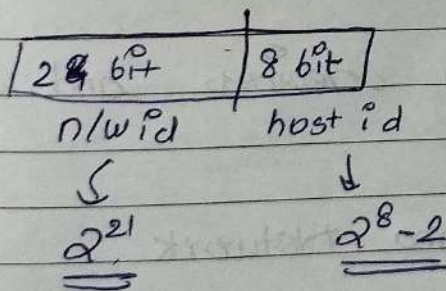 24 bit 8 bit
n/w id host id
2²¹ 2⁸-2